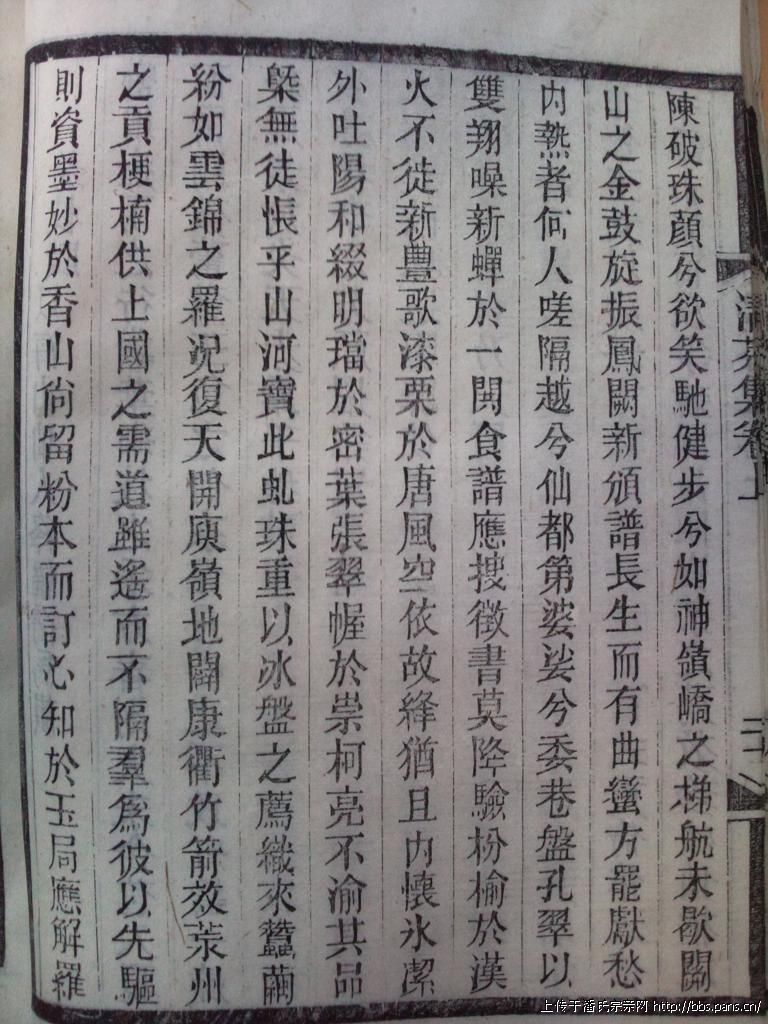 陳破珠顏兮欲笑馳健步兮如神嶺嶠之梯航未歇關
山之金鼓旋振鳳闕新頒譜長生而有曲蠻方罷獻愁
內熱者何人嗟隔越兮仙都第婆娑兮委巷盤孔翠以
雙翔噪新蟬於一閧食譜應搜徵書莫降驗枌榆於漢
火不徙新豐歌漆栗於唐風空依故絳猶且內懷氷潔
外吐陽和綴明璫於密葉張翠幄於崇柯亮不渝其品
槩無徒悵乎山河寶此虬珠重以冰盤之薦織來蠶繭
紛如雲錦之羅况復天開庾嶺地闢康衢竹箭效荊州
之貢梗楠供上國之需道雖遙而不隔羣為彼以先驅
則資墨妙於香山尙留粉本而訂心知於玉局應解羅
集卷上
上传于潘氏宗亲网 http://bbs.pans.cn/